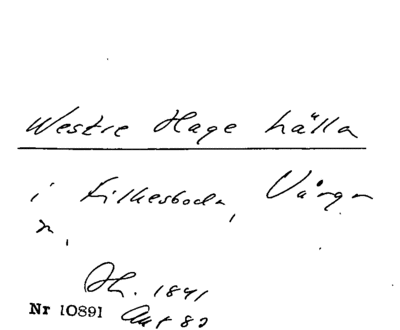 Westre Hage hälla
i Filkesboda, Vånga
n.
Ak. 1841
Nr 10891 Akt 82